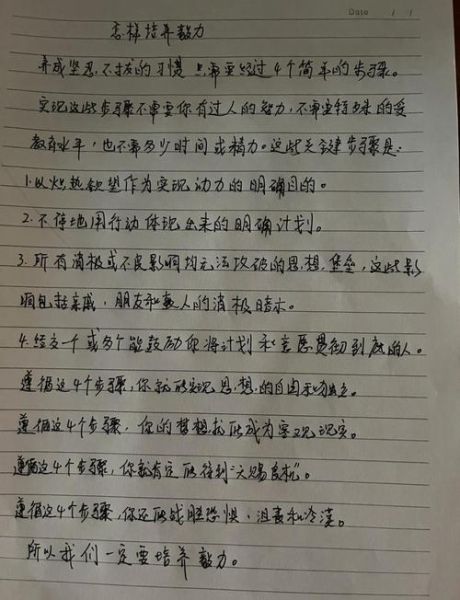 Date / /
怎样培养毅力
养成坚忍不拔的习惯只需要经过4个简单的步骤。
实现这些步骤不需要你有过人的智力，不需要特殊的受
教育水平，也不需多少时间或精力。这些关键步骤是：
1.以炽热欲望作为实现动力的明确目的。
2.不停地用行动体现出来的明确计划。
3.所有消极或不良影响均无法攻破的思想堡垒，这些影
响包括亲戚，朋友和熟人的消极暗示。
4.结交一个或多个能鼓励你将计划和意愿贯彻到底的人。
遵循这4个步骤，你就能实现思想的自由和独立。
遵循这4个步骤，你的梦想就能成为实现现实。
遵循这4个步骤，你就肯定能得到“天赐良机”。
遵循这4个步骤，你还能战胜恐惧，沮丧和冷漠。
所以我们一定要培养毅力。